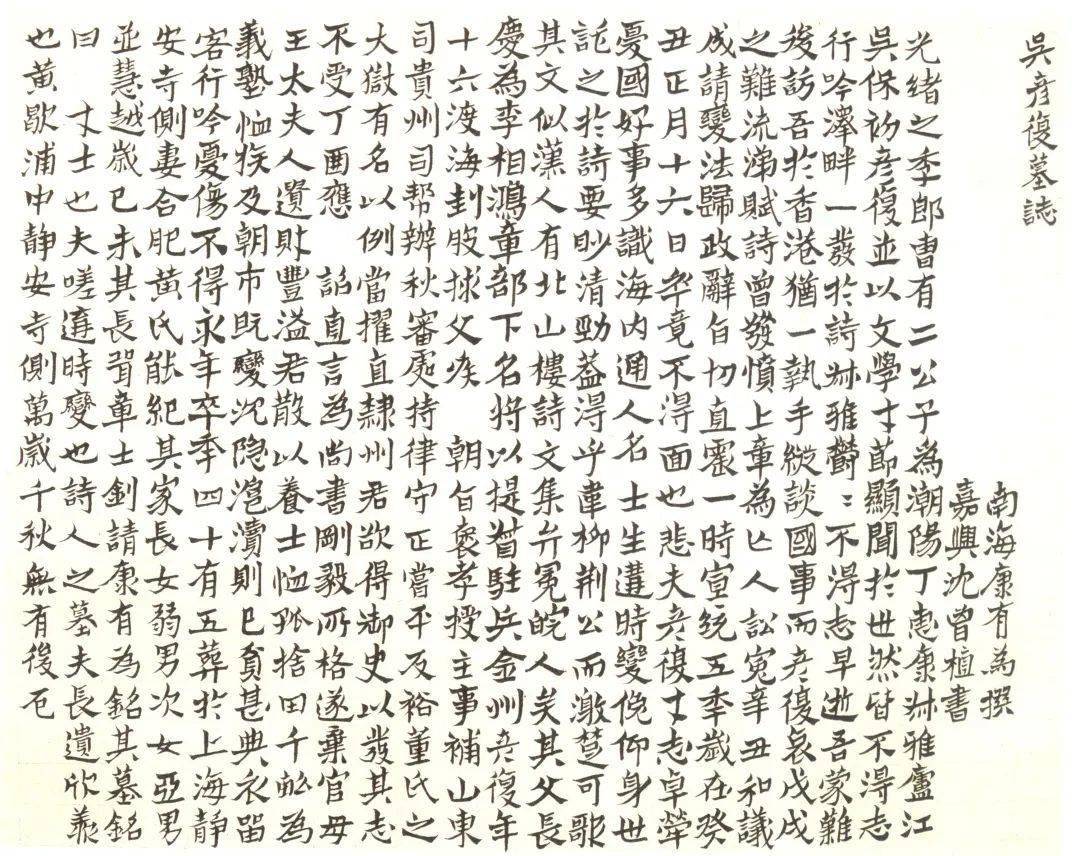 吳彥復墓誌
南海康有為撰
嘉興沈曾植書
光緒之季郎曹有二公子為潮陽丁惠康叔雅廬江
吳保初彥復並以文學才節顯聞於世然皆不得志
行吟澤畔一發於詩叔雅鬱〻不得志早逝吾蒙難
後訪吾於香港猶一執手縱談國事而彥復哀戊戌
之難流涕賦詩曾發憤上章為亡人訟冤辛丑和議
成請變法歸政辭旨切直震一時宣統五季歲在癸
丑正月十六日卒竟不得面也悲夫彥復才志卓犖
憂國好事多識海內通人名士生遘時變俛仰身世
託之於詩要眇清勁蓋得乎韋柳荊公而激楚可歌
其文似漢人有北山樓詩文集弁冕皖人矣其父長
慶為李相鴻章部下名將以提督駐兵金州彥復年
十六渡海刲股捄父疾 朝旨褒孝授主事補山東
司貴州司帮辦秋審處持律守正嘗平反裕董氏之
大獄有名以例當擢直隸州君欲得御史以發其志
不受丁酉應 詔直言為尚書剛毅所格遂棄官毋
王太夫人遺財豐溢君散以養士恤孤捨田千畝為
義塾恤族及朝市既變沈隐滬瀆則已貧甚典衣留
客行吟憂傷不得永年卒季四十有五葬於上海靜
安寺側妻合肥黃氏能紀其家長女弱男次女亞男
並慧越歲己未其長壻章士釗請康有為銘其墓銘
曰 才士也夫嗟遘時變也詩人之墓夫長遺欣羨
也黃歇浦中靜安寺側萬歲千秋無有後厄